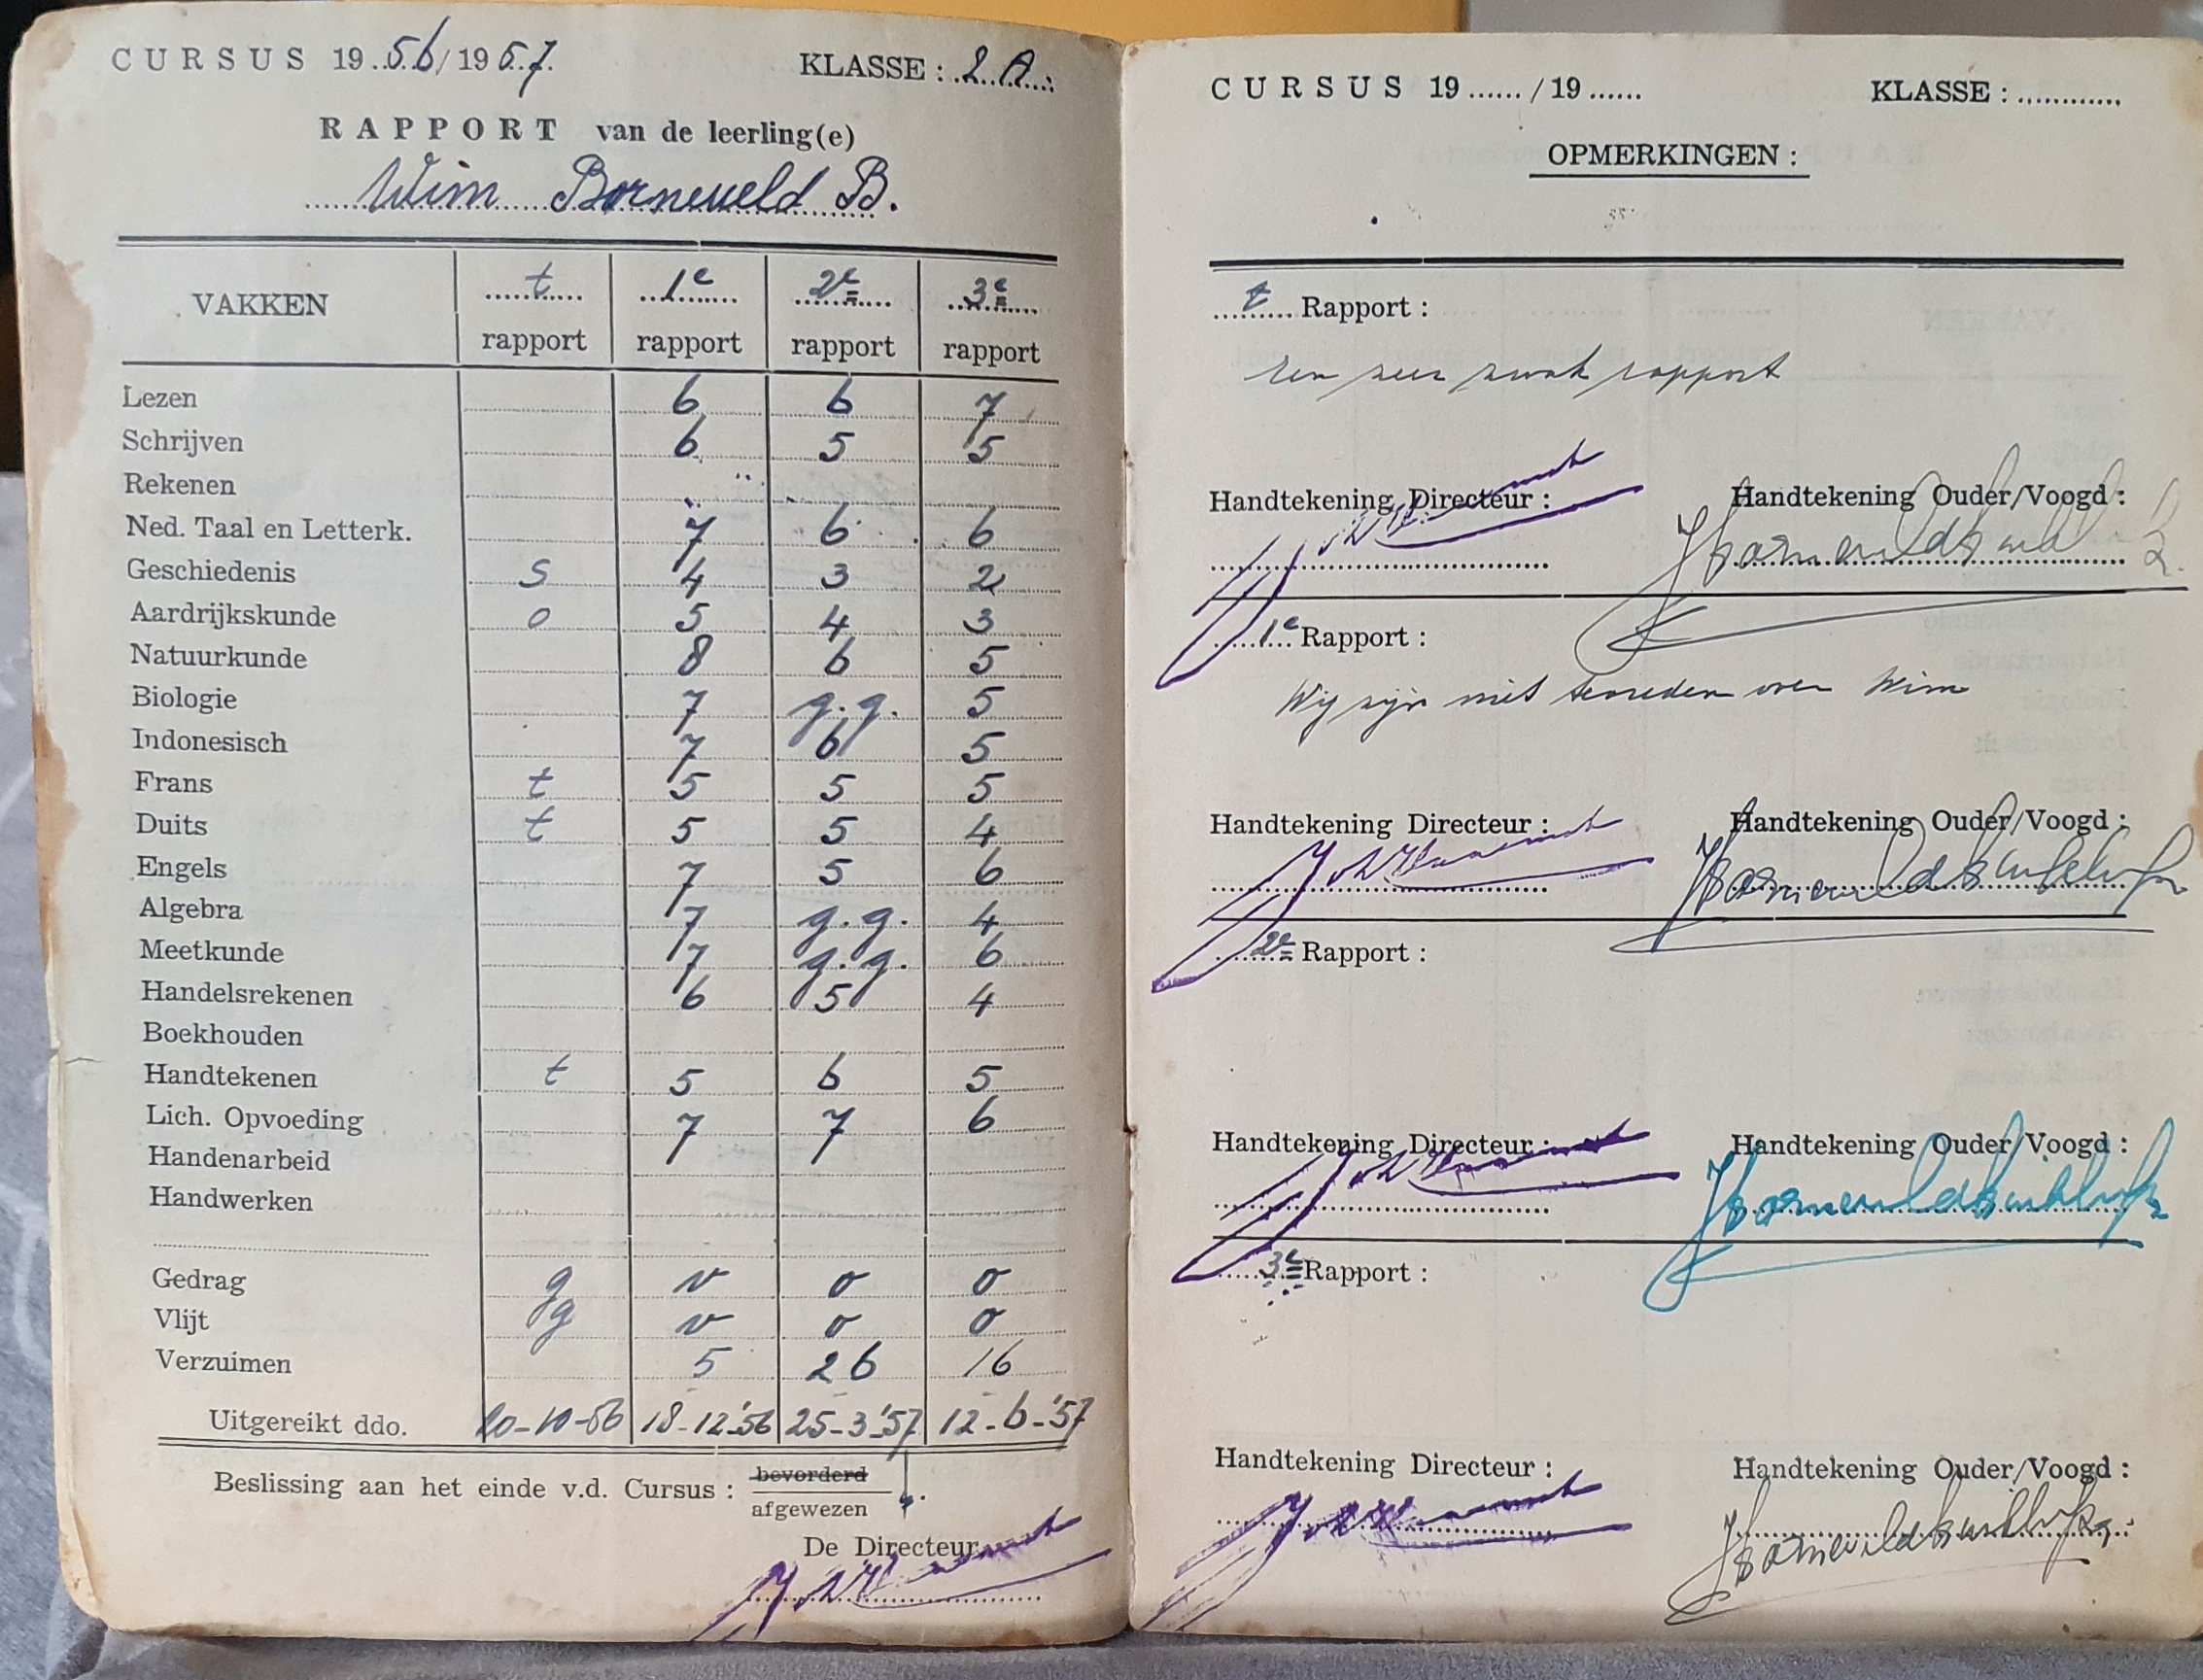 CURSUS 19 56/1957. KLASSE: 2 A.
RAPPORT van de leerling(e)
Wim Borneveld B.
VAKKEN t rapport 1e rapport 2e rapport 3e rapport
Lezen 6 6 7
Schrijven 6 5 5
Rekenen
Ned. Taal en Letterk. 7 6 6
Geschiedenis s 4 3 2
Aardrijkskunde o 5 4 3
Natuurkunde 8 6 5
Biologie 7 g.g. 5
Indonesisch 7 6 5
Frans t 5 5 5
Duits t 5 5 4
Engels 7 5 6
Algebra 7 g.g. 4
Meetkunde 7 g.g. 6
Handelsrekenen 6 5 4
Boekhouden
Handtekenen t 5 6 5
Lich. Opvoeding 7 7 6
Handenarbeid
Handwerken
Gedrag g v o o
Vlijt g v o o
Verzuimen 5 26 16
Uitgereikt ddo. 20-10-56 18-12-'56 25-3-'57 12-6-'57
Beslissing aan het einde v.d. Cursus: bevorderd
afgewezen
De Directeur
CURSUS 19...... / 19...... KLASSE: ............
OPMERKINGEN:
t Rapport:
Een zeer zwak rapport
Handtekening Directeur: Handtekening Ouder/Voogd:
1e Rapport:
Wij zijn niet tevreden over Wim
Handtekening Directeur: Handtekening Ouder/Voogd:
2e Rapport:
Handtekening Directeur: Handtekening Ouder/Voogd:
3e Rapport:
Handtekening Directeur: Handtekening Ouder/Voogd: